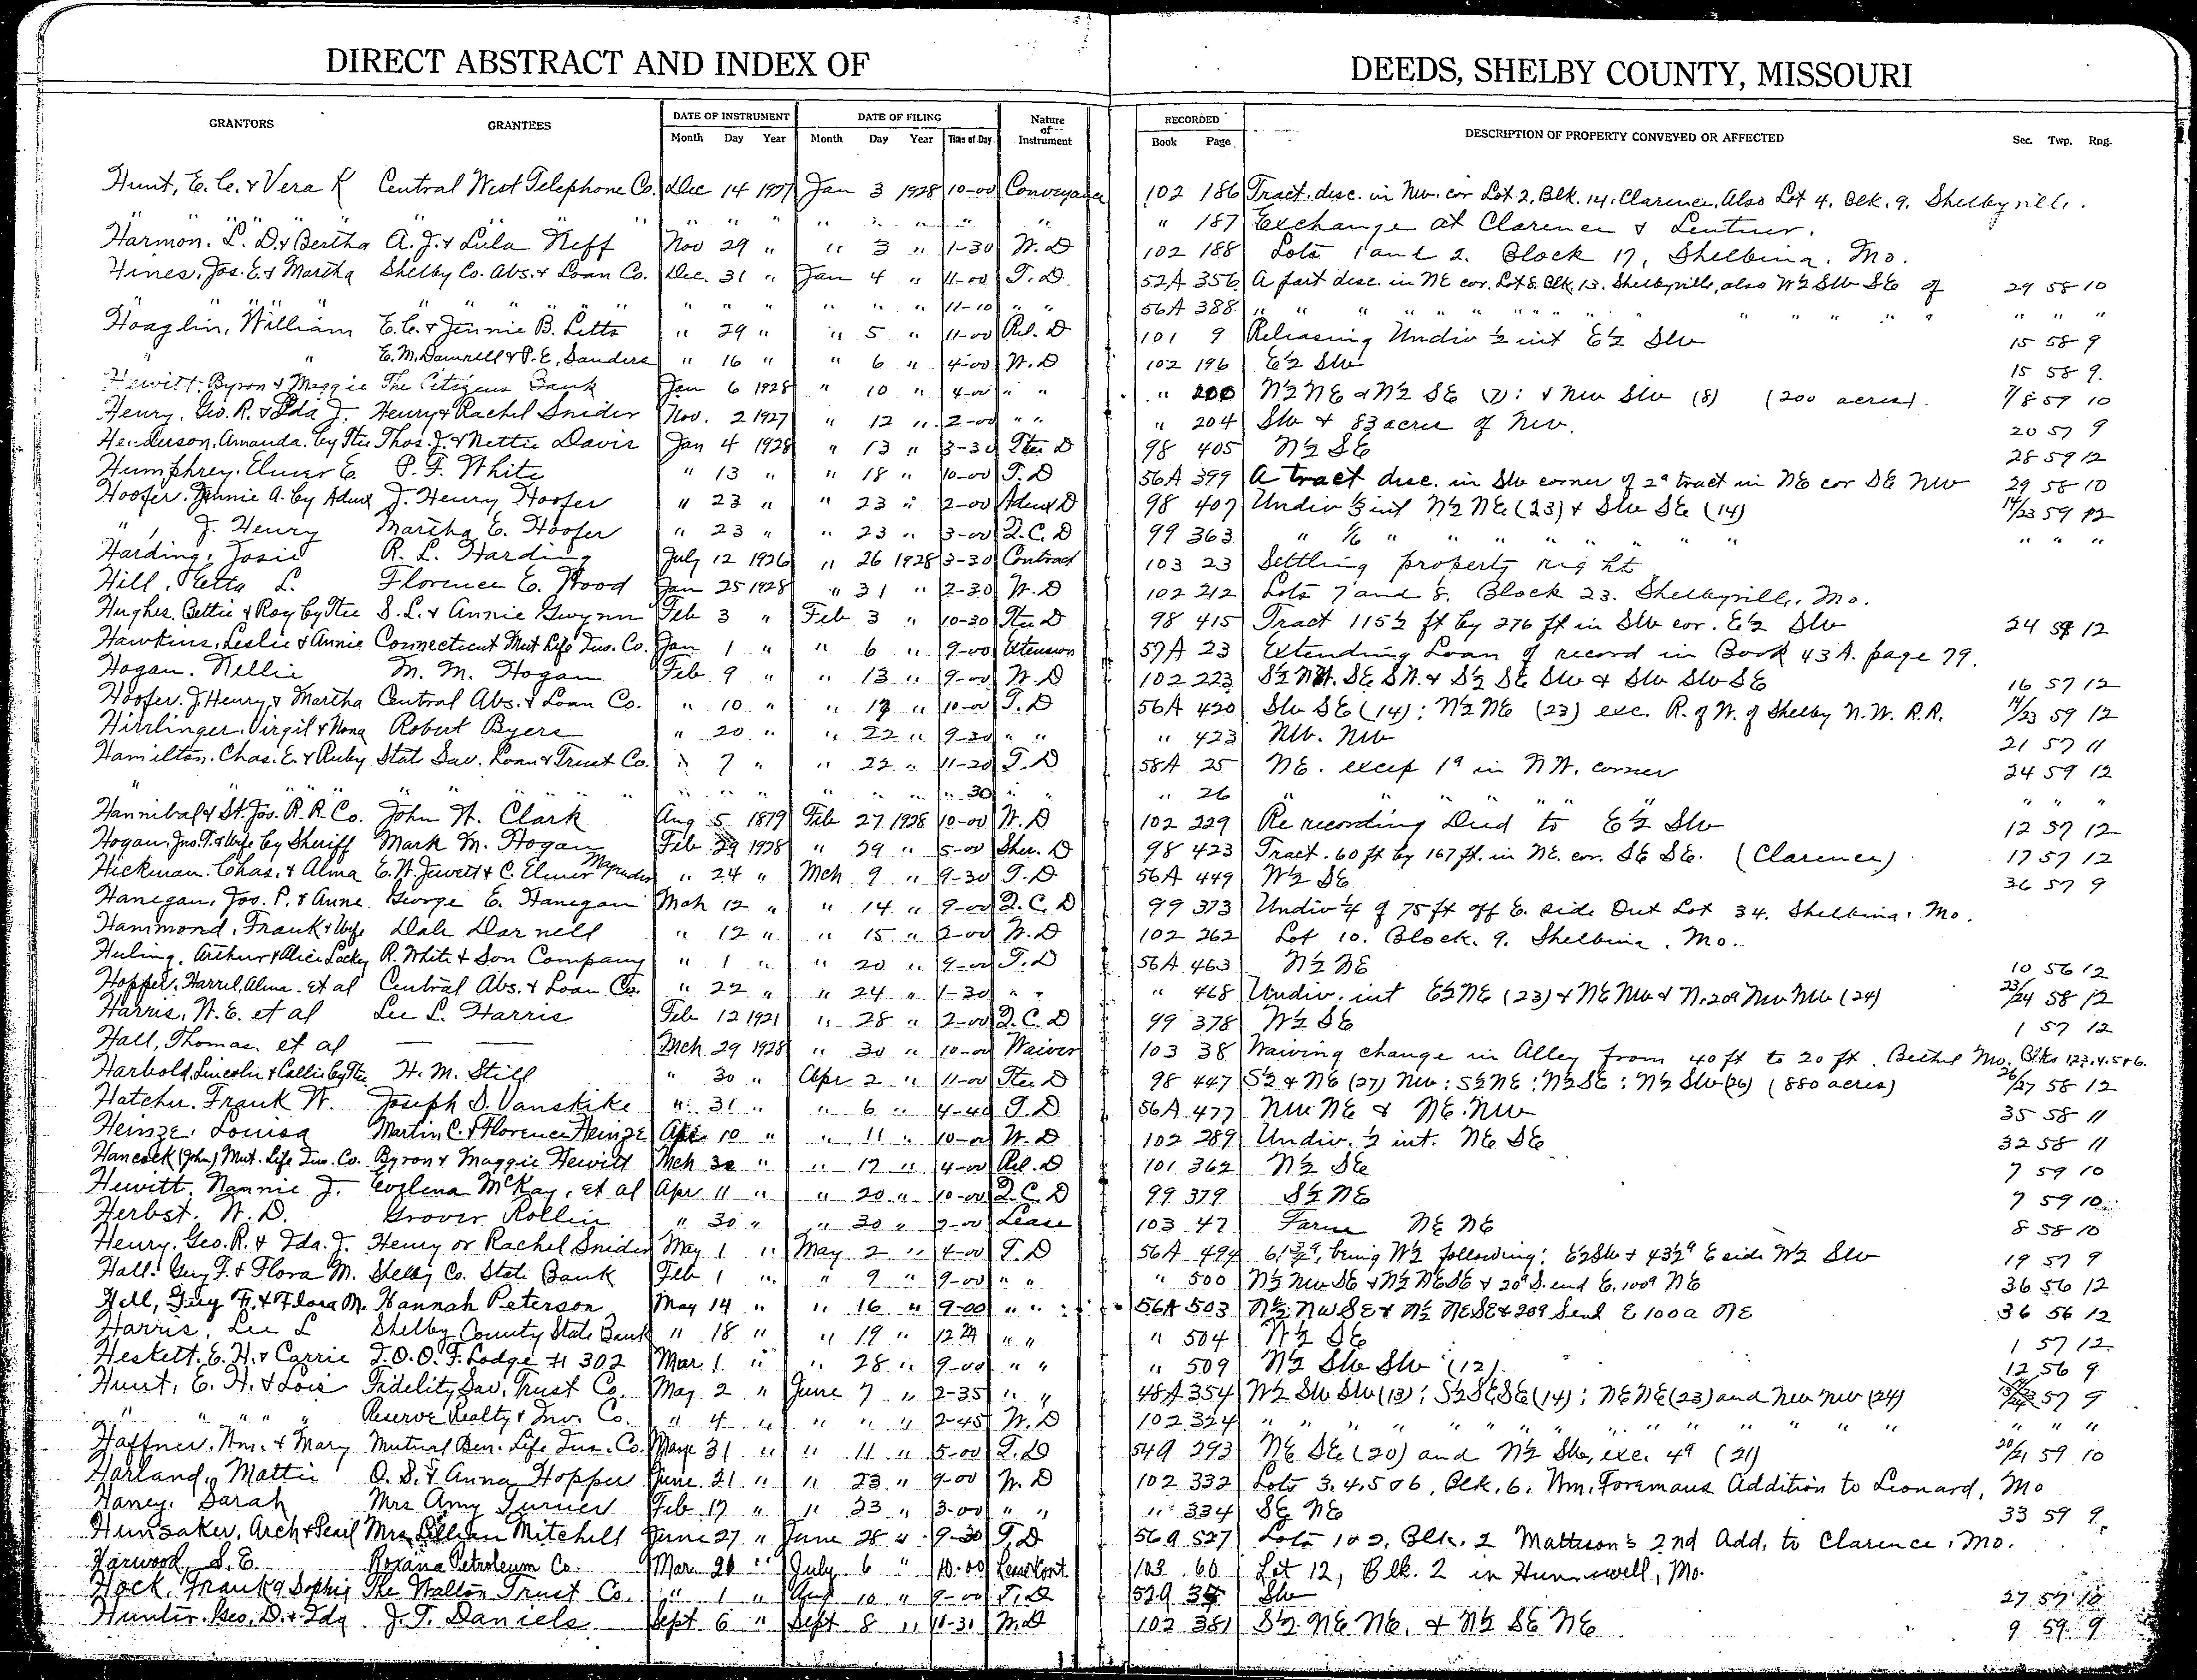 DIRECT ABSTRACT AND INDEX OF DEEDS, SHELBY COUNTY, MISSOURI
GRANTORS GRANTEES DATE OF INSTRUMENT DATE OF FILING Nature of Instrument RECORDED DESCRIPTION OF PROPERTY CONVEYED OR AFFECTED Sec. Twp. Rng.
Month Day Year Month Day Year Time of Day Book Page
Hunt, E. C. & Vera K Central West Telephone Co. Dec 14 1927 Jan 3 1928 10-00 Conveyance 102 186 Tract. desc. in NW. cor Lot 2, Blk. 14, Clarence, Also Lot 4, Blk. 9, Shelbyville.
" " " " " " " " " " " " " " " 187 Exchange at Clarence & Lentner.
Harmon, L. D. & Bertha A. J. & Lula Neff Nov 29 " " 3 " 1-30 W. D 102 188 Lots 1 and 2, Block 17, Shelbina, Mo.
Hines, Jos. E. & Martha Shelby Co. Abs. & Loan Co. Dec. 31 " Jan 4 " 11-00 T. D. 52A 356 A part desc. in NE cor. Lot 8, Blk. 13. Shelbyville, also W½ SW SE of 29 58 10
" " " " " " " " " " " " " " " 11-10 " " 56A 388 " " " " " " " " " " " " "
Hoaglin, William E. C. & Jennie B. Letts " 29 " " 5 " 11-00 Rel. D 101 9 Releasing Undiv ½ int E½ SW 15 58 9
" " E. M. Damrell & P. E. Sanders " 16 " " 6 " 4-00 W. D 102 196 E½ SW 15 58 9.
Hewitt, Byron & Maggie The Citizens Bank Jan 6 1928 " 10 " 4-00 " " " 200 N½ NE & N½ SE (7): & NW SW (8) (200 acres). 7/8 59 10
Henry, Geo. R. & Ida J. Henry & Rachel Snider Nov. 2 1927 " 12 " 2-00 " " " 204 SW & 83 acres of NW. 20 57 9
Henderson, Amanda. by Ttee Thos. J. & Nettie Davis Jan 4 1928 " 13 " 3-30 Ttee D 98 405 N½ SE 28 59 12
Humphrey, Elmer E. P. F. White " 13 " " 18 " 10-00 T. D 56A 399 A tract desc. in SW corner of 2ª tract in NE cor SE NW 29 58 10
Hoofer, Jennie A. by Admx J. Henry Hoofer " 23 " " 23 " 2-00 Admx D 98 407 Undiv ⅓ int N½ NE (23) & SW SE (14) 14/23 59 12
" , J. Henry Martha E. Hoofer " 23 " " 23 " 3-00 Q. C. D 99 363 " ⅙ " " " " " " " " " "
Harding, Josie R. L. Harding July 12 1926 " 26 1928 3-30 Contract 103 23 Settling property right
Hill, Etta L. Florence E. Wood Jan 25 1928 " 31 " 2-30 W. D 102 212 Lots 7 and 8, Block 23. Shelbyville, Mo.
Hughes, Bettie & Roy by Ttee S. L. & Annie Gwynn Feb 3 " Feb 3 " 10-30 Ttee D 98 415 Tract 115½ ft by 276 ft in SW cor. E½ SW 24 12
Hawkins, Leslie & Annie Connecticut Mut Life Ins. Co. Jan 1 " " 6 " 9-00 Extension 57A 23 Extending Loan of record in Book 43A. page 79.
Hogan, Nellie M. M. Hogan Feb 9 " " 13 " 9-00 W. D 102 223 S½ SE SW. & S½ SE SW & SW SW SE 16 57 12
Hoofer, J. Henry & Martha Central Abs. & Loan Co. " 10 " " " 10-00 T. D 56A 420 SW SE (14); N½ NE (23) exc. R. of W. of Shelby N. W. R.R. 14/23 59 12
Hirrlinger, Virgil & Nona Robert Byers " 20 " " 22 " 9-30 " " " 423 NW. NW 21 57 11
Hamilton, Chas. E. & Ruby State Sav. Loan & Trust Co. " 7 " " 22 " 11-20 T. D 58A 25 NE. excep 1ª in NW. corner 24 59 12
" " " " " " " " " " " " " 30 " " " 26 " " " " " " " " "
Hannibal & St. Jos. R. R. Co. John W. Clark Aug 5 1879 Feb 27 1928 10-00 W. D 102 229 Re recording Deed to E½ SW 12 57 12
Hogan, Jno. T. & Wife by Sheriff Mark M. Hogan Feb 29 1928 " 29 " 5-00 Sher. D 98 423 Tract. 60 ft by 167 ft. in NE. cor. SE SE. (Clarence) 17 57 12
Hickman, Chas. & Alma E. W. Jewett & C. Elmer Magruder " 24 " Mch 9 " 9-30 T. D 56A 449 W½ SE 36 57 9
Hanegan, Jos. P. & Anne George E. Hanegan Mch 12 " " 14 " 9-00 Q. C. D 99 373 Undiv ¼ of 75 ft off E. side Out Lot 34. Shelbina, Mo.
Hammond, Frank & Wife Dale Darnell " 12 " " 15 " 2-00 W. D 102 262 Lot 10. Block. 9. Shelbina, Mo.
Huling, Arthur & Alice Locky R. White & Son Company " 1 " " 20 " 9-00 T. D 56A 463 N½ NE 10 56 12
Hopper, Harrel, Alma. et al Central Abs. & Loan Co. " 22 " " 24 " 1-30 " " " 468 Undiv. int E½ NE (23) & NE NW & N. 20ª NW NW (24) 23/24 58 12
Harris, W. E. et al Lee L. Harris Feb 12 1921 " 28 " 2-00 Q. C. D 99 378 W½ SE 1 57 12
Hall, Thomas, et al — — Mch 29 1928 " 30 " 10-00 Waiver 103 38 Waiving change in Alley from 40 ft to 20 ft. Bethel Mo. Blks 1 2 3. 4. 5 & 6.
Harbold, Lincoln & Callie by Ttee H. M. Still " 30 " Apr 2 " 11-00 Ttee D 98 447 S½ & NE (27) NW; S½ NE; N½ SE; N½ SW (26) (880 acres) 26/27 58 12
Hatcher, Frank W. Joseph D. Vanskike " 31 " " 6 " 4-40 T. D 56A 477 NW NE & NE. NW 35 58 11
Heinze, Louisa Martin C. & Florence Heinze Apr 10 " " 11 " 10-00 W. D 102 289 Undiv. ½ int. NE SE 32 58 11
Hancock (John) Mut. Life Ins. Co. Byron & Maggie Hewitt Mch 30 " " 17 " 4-00 Rel. D 101 362 N½ SE 7 59 10
Hewitt, Nannie J. Evelena McKay, et al Apr 11 " " 20 " 10-00 Q. C. D 99 379 S½ NE 7 59 10
Herbst, W. D. Grover Rollin " 30 " " 30 " 2-00 Lease 103 47 Farm NE NE 8 58 10
Henry, Geo. R. & Ida. J. Henry or Rachel Snider May 1 " May 2 " 4-00 T. D 56A 494 61¾ª, being W½ following: E½ SW & 43½ª E side W½ SW 19 57 9
Hall, Guy F. & Flora M. Shelby Co. State Bank Feb 1 " " 9 " 9-00 " " " 500 N½ NW SE & N½ NE SE & 20ª S. end E. 100ª NE 36 56 12
Hall, Guy F. & Flora M. Hannah Peterson May 14 " " 16 " 9-00 " " 56A 503 N½ NW SE & N½ NE SE & 20a S end E 100a NE 36 56 12
Harris, Lee L Shelby County State Bank " 18 " " 19 " " " " 504 W½ SE 1 57 12
Heskett, E. H. & Carrie I. O. O. F. Lodge # 302 Mar 1 " " 28 " 9-00 " " " 509 N½ SW SW (12) 12 56 9
Hunt, E. H. & Lois Fidelity Sav. Trust Co. May 2 " June 7 " 2-35 " " 48A 354 W½ SW SW (13); S½ SE SE (14); NE NE (23) and NW NW (24) 57 9
" " " " Reserve Realty & Inv. Co. " 4 " " " " 2-45 W. D 102 324 " " " " " " " " " " " " " " "
Haffner, Wm. & Mary Mutual Ben. Life Ins. Co. 31 " " 11 " 5-00 T. D 54A 293 NE SE (20) and N½ SW, exc. 4ª (21) 20/21 59 10
Harland, Mattie O. S. & Anna Hopper June 21 " " 23 " 9-00 W. D 102 332 Lots 3. 4. 5 & 6, Blk. 6, Wm. Foremans Addition to Leonard, Mo
Haney, Sarah Mrs Amy Turner Feb 17 " " 23 " 3-00 " " " 334 SE NE 33 59 9
Hunsaker, Arch & Pearl Mrs Lillian Mitchell June 27 " June 28 " 9-30 T. D 56A 527 Lots 1 & 2, Blk. 2 Mattison's 2nd Add. to Clarence, Mo.
Harwood, S. E. Roxana Petroleum Co. Mar 21 " July 6 " 10-00 Lease Cont. 103 60 Lot 12, Blk. 2 in Hunnewell, Mo.
Hock, Frank & Sophie The Walton Trust Co. " 1 " Aug 10 " 9-00 T. D 52A SW 27 57 10
Hunter, Geo. D. & Ida J. T. Daniels Sept 6 " Sept 8 " W. D 102 381 S½ NE NE, & N½ SE NE 9 59 9